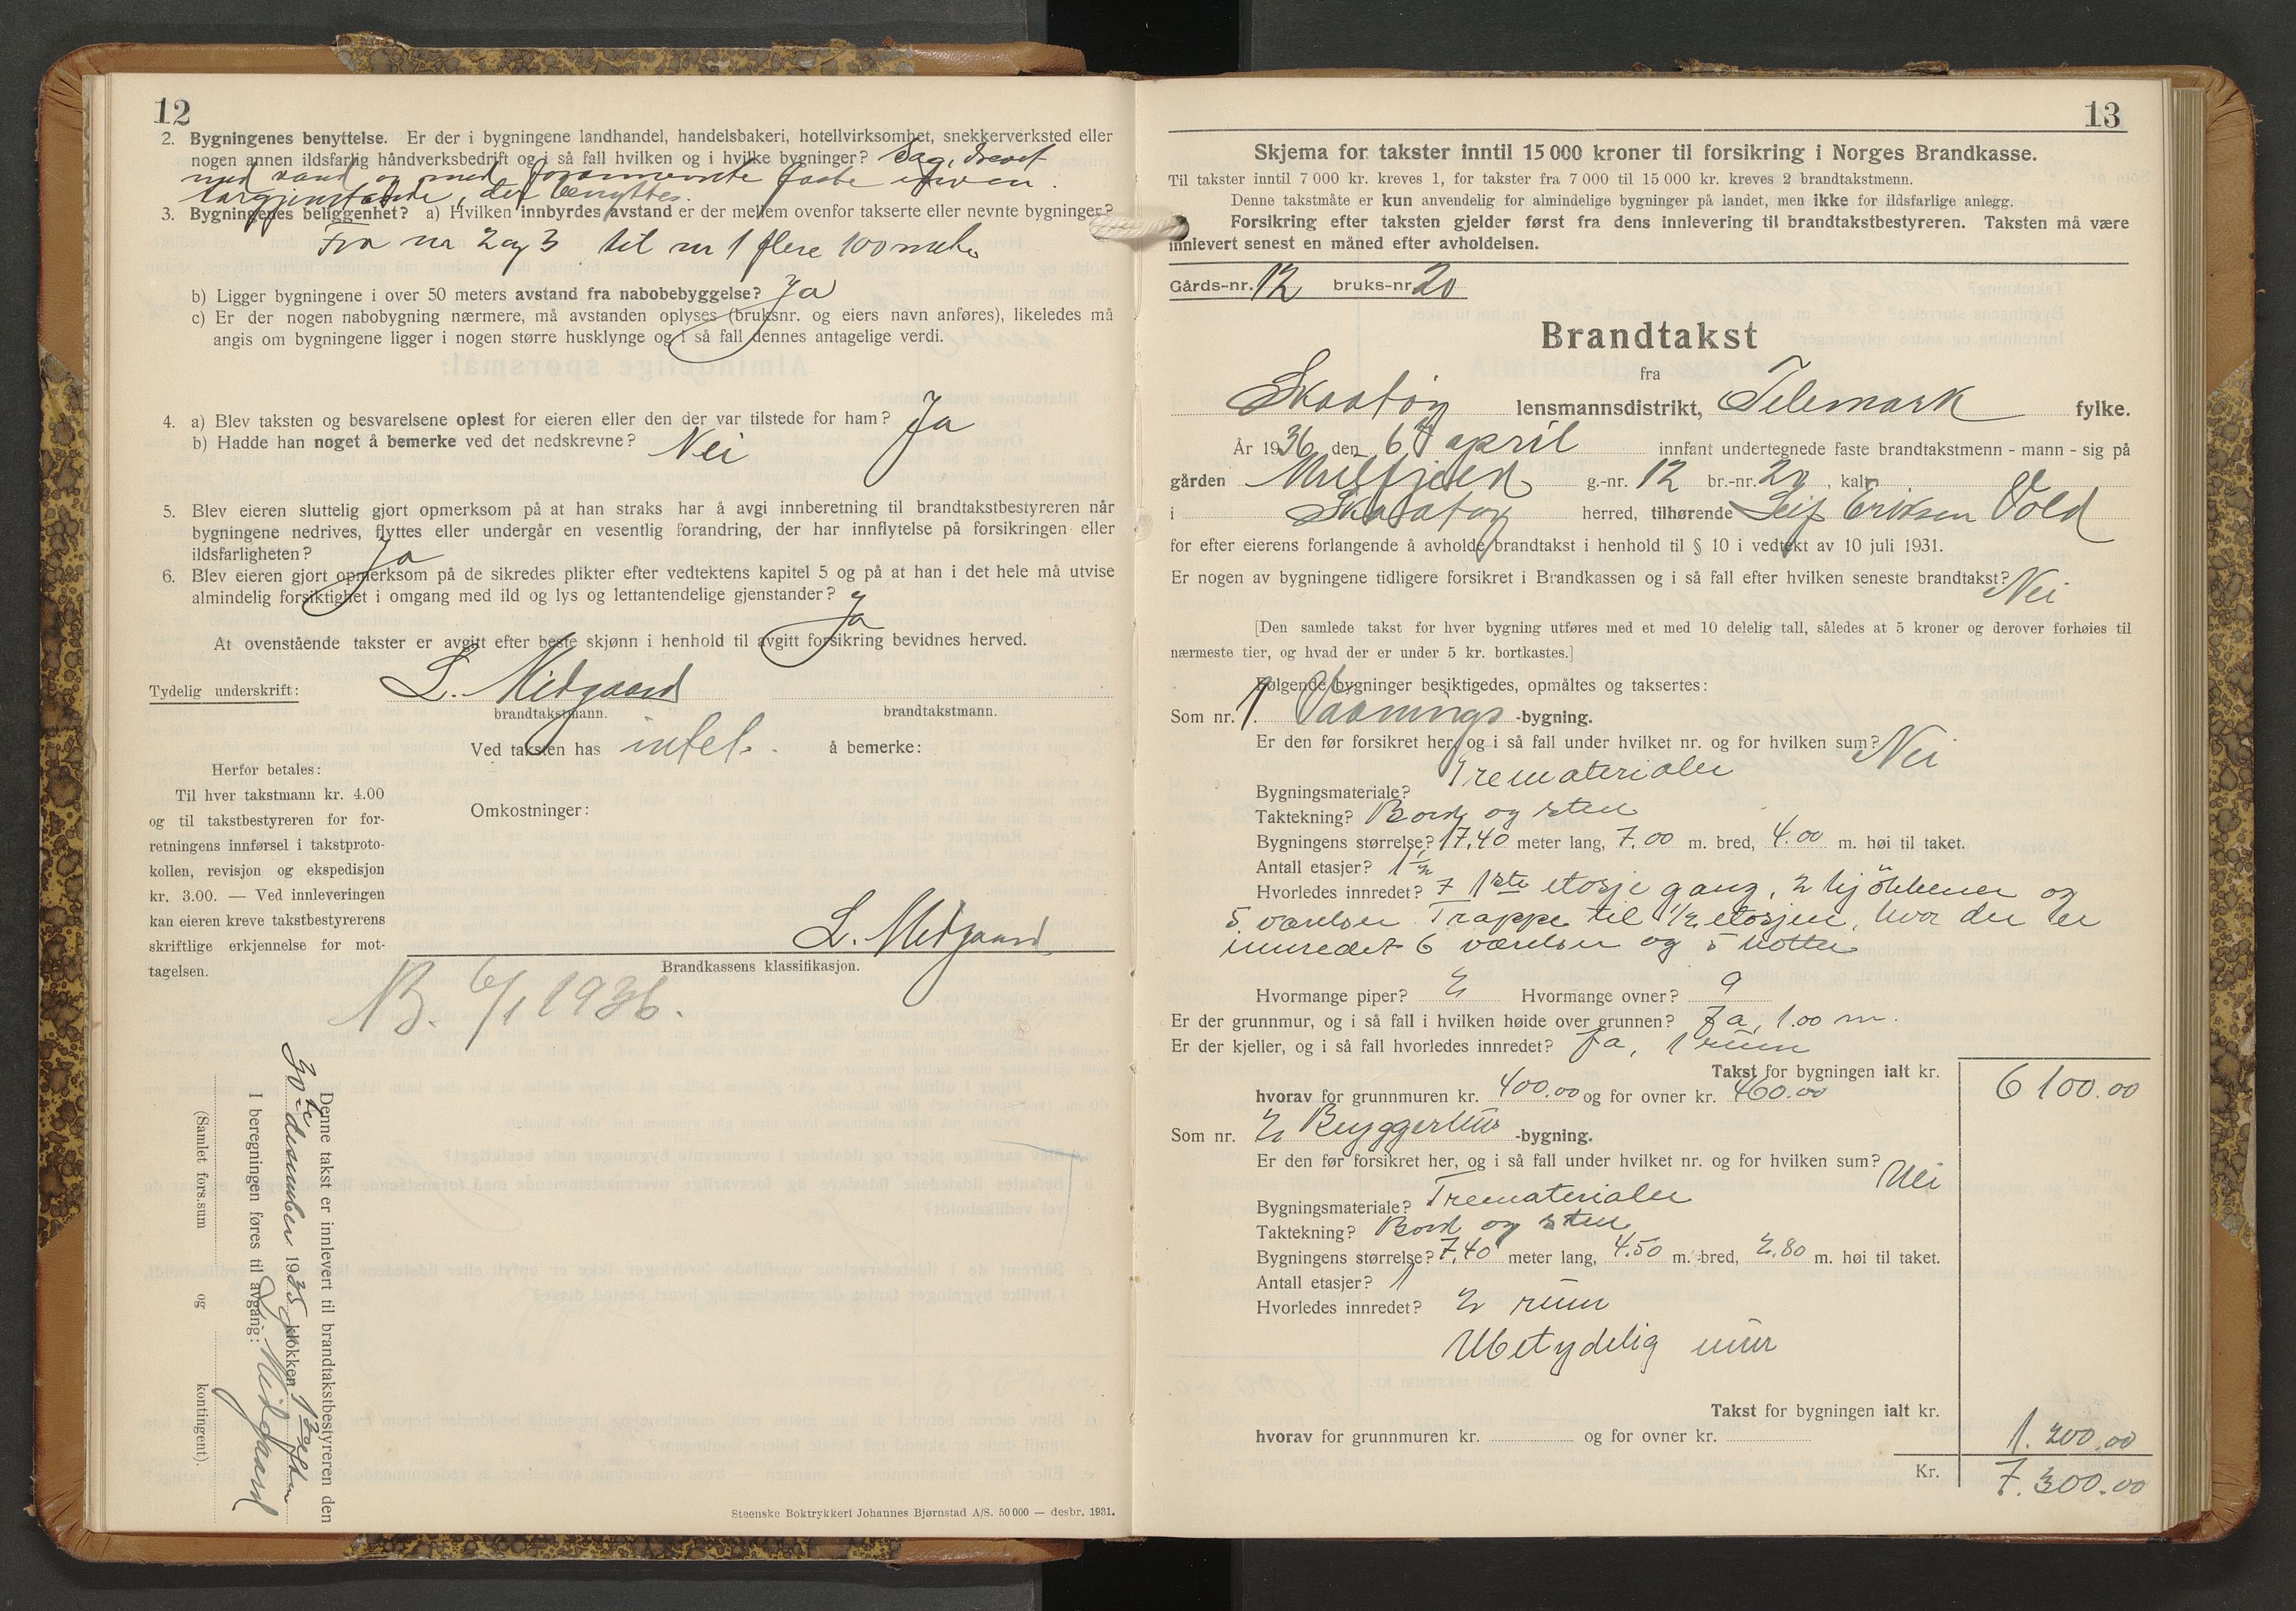 12
2. Bygningenes benyttelse. Er der i bygningene landhandel, handelsbakeri, hotellvirksomhet, snekkerverksted eller
nogen annen ildsfarlig håndverksbedrift og i så fall hvilken og i hvilke bygninger? Sag, drevet
med vand og med forannevnte faste
, der benyttes.
3. Bygningenes beliggenhet? a) Hvilken innbyrdes avstand er der mellem ovenfor takserte eller nevnte bygninger?
Fra nr 2 og 3 til nr 1 flere 100 meter
b) Ligger bygningene i over 50 meters avstand fra nabobebyggelse? Ja
c) Er der nogen nabobygning nærmere, må avstanden oplyses (bruksnr. og eiers navn anføres), likeledes må
angis om bygningene ligger i nogen større husklynge og i så fall dennes antagelige verdi.
4. a) Blev taksten og besvarelsene oplest for eieren eller den der var tilstede for ham? Ja
b) Hadde han noget å bemerke ved det nedskrevne? Nei
5. Blev eieren sluttelig gjort opmerksom på at han straks har å avgi innberetning til brandtakstbestyreren når
bygningene nedrives, flyttes eller undergår en vesentlig forandring, der har innflytelse på forsikringen eller
ildsfarligheten? Ja
6. Blev eieren gjort opmerksom på de sikredes plikter efter vedtektens kapitel 5 og på at han i det hele må utvise
almindelig forsiktighet i omgang med ild og lys og lettantendelige gjenstander? Ja
At ovenstående takster er avgitt efter beste skjønn i henhold til avgitt forsikring bevidnes herved.
Tydelig underskrift: L. Midgaard
brandtakstmann. brandtakstmann.
Ved taksten has intet. å bemerke:
Herfor betales:
Til hver takstmann kr. 4.00
og til takstbestyreren for for-
retningens innførsel i takstproto-
kollen, revisjon og ekspedisjon
kr. 3.00. — Ved innleveringen
kan eieren kreve takstbestyrerens
skriftlige erkjennelse for mot-
tagelsen.
Omkostninger:
L. Midgaard
Brandkassens klassifikasjon.
B. 6/1 1936.
Denne takst er innlevert til brandtakstbestyreren den
30te desember 1935 klokken 1
I beregningen føres til avgang: L. Midgaard
(Samlet fors.sum og kontingent).
Steenske Boktrykkeri Johannes Bjørnstad A/S. 50 000 — desbr. 1931.
13
Skjema for takster inntil 15 000 kroner til forsikring i Norges Brandkasse.
Til takster inntil 7 000 kr. kreves 1, for takster fra 7 000 til 15 000 kr. kreves 2 brandtakstmenn.
Denne takstmåte er kun anvendelig for almindelige bygninger på landet, men ikke for ildsfarlige anlegg.
Forsikring efter taksten gjelder først fra dens innlevering til brandtakstbestyreren. Taksten må være
innlevert senest en måned efter avholdelsen.
Gårds-nr. 12 bruks-nr. 20
Brandtakst
fra
Skaatøy lensmannsdistrikt, Telemark fylke.
År 1936 den 6te april innfant undertegnede faste brandtakstmenn - mann - sig på
gården Mulfjeld g.-nr. 12 br.-nr. 20, kalt
i Skaatøy herred, tilhørende Leif Eriksen Vold
for efter eierens forlangende å avholde brandtakst i henhold til § 10 i vedtekt av 10 juli 1931.
Er nogen av bygningene tidligere forsikret i Brandkassen og i så fall efter hvilken seneste brandtakst? Nei
[Den samlede takst for hver bygning utføres med et med 10 delelig tall, således at 5 kroner og derover forhøies til
nærmeste tier, og hvad der er under 5 kr. bortkastes.]
Følgende bygninger besiktigedes, opmåltes og taksertes:
Som nr. 1. Vaanings -bygning.
Er den før forsikret her, og i så fall under hvilket nr. og for hvilken sum? Nei
Bygningsmateriale? Trematerialer
Taktekning? Bord og sten
Bygningens størrelse? 17.40 meter lang, 7.00 m. bred, 4.00 m. høi til taket.
Antall etasjer? 1 1/2
Hvorledes innredet? I 1ste etasje gang, 2 kjökkener og
5 værelser Trappe til 1/2 etasjen, hvor der er
innredet 6 værelser og 5 kotter
Hvormange piper? 2 Hvormange ovner? 9
Er der grunnmur, og i så fall i hvilken høide over grunnen? Ja, 1.00 m.
Er der kjeller, og i så fall hvorledes innredet? Ja, 1 rum
Takst for bygningen ialt kr. 6 100.00
hvorav for grunnmuren kr. 400.00 og for ovner kr. 460.00
Som nr. 2 Bryggerhus -bygning.
Er den før forsikret her, og i så fall under hvilket nr. og for hvilken sum? Nei
Bygningsmateriale? Trematerialer
Taktekning? Bord og sten
Bygningens størrelse? 7.40 meter lang, 4.50 m. bred, 2.80 m. høi til taket.
Antall etasjer? 1
Hvorledes innredet? 2 rum
Ubetydelig mur
Takst for bygningen ialt kr. 1.200.00
hvorav for grunnmuren kr. og for ovner kr.
Kr. 7.300.00